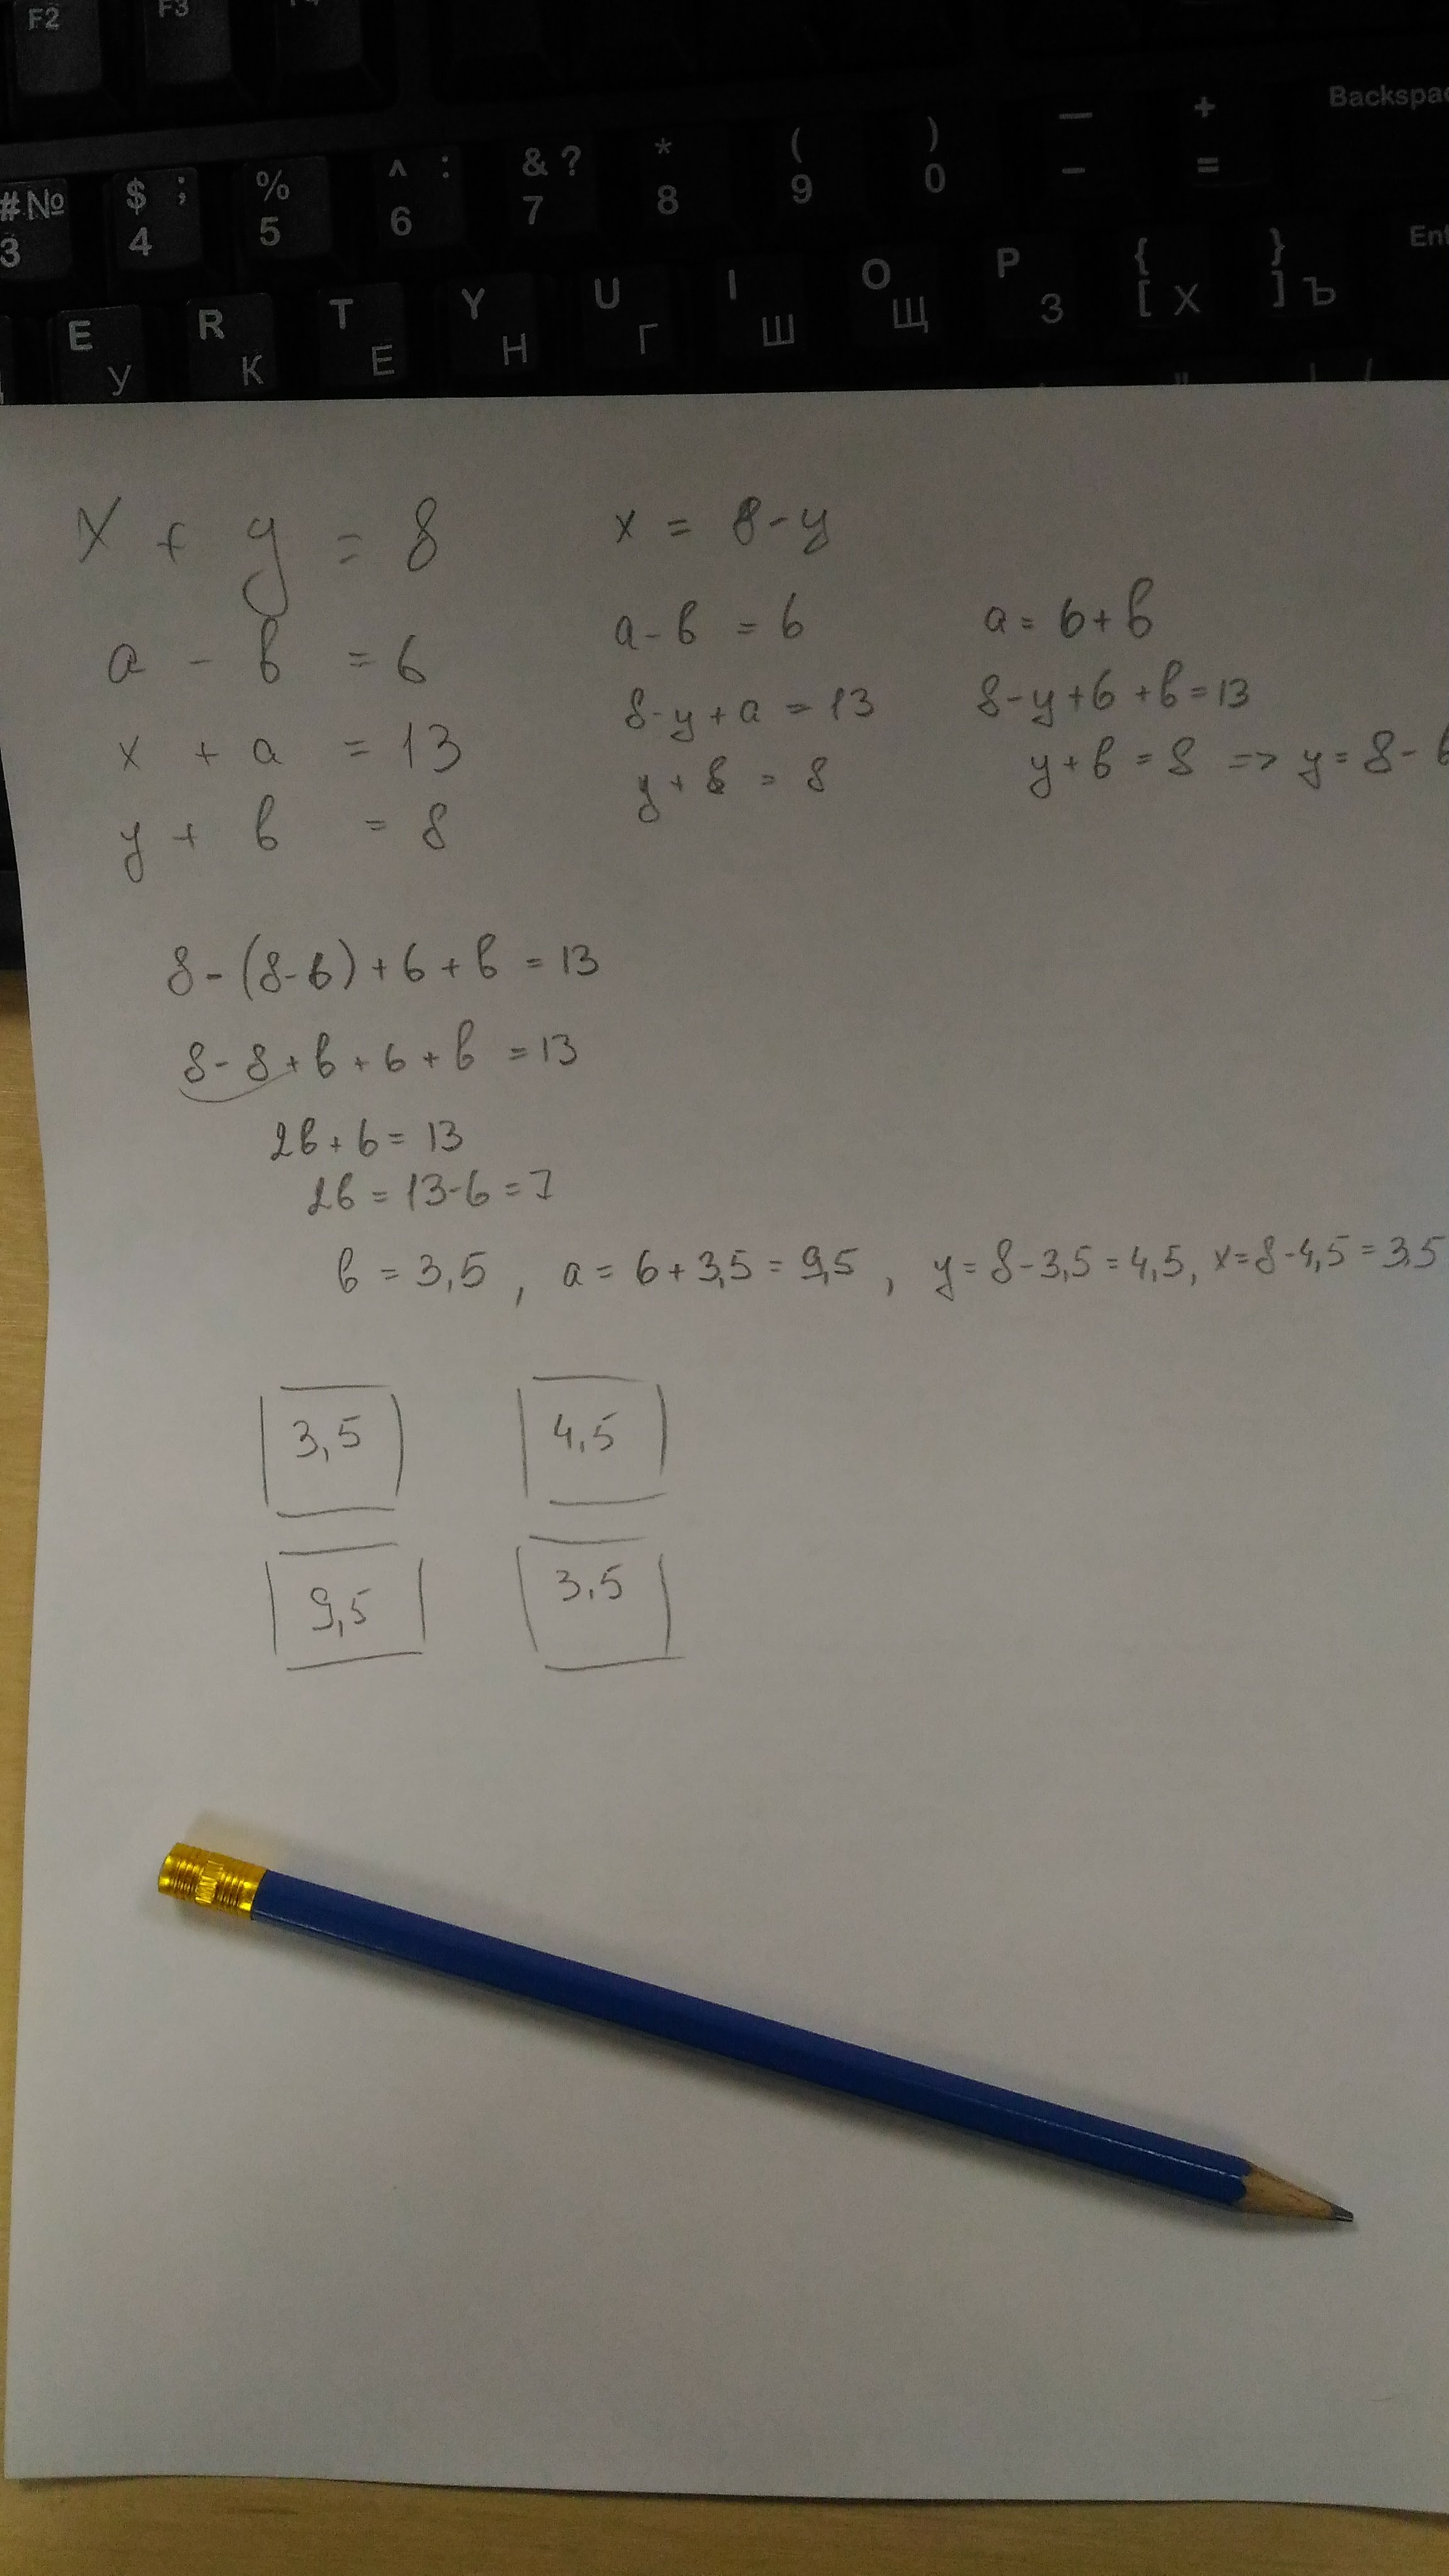 F2 F3
Backspac
#№ $ ; % ^ : & ? * ( ) — +
3 4 5 6 7 8 9 0 - =
E R T Y U I O P { } Ent
У К Е Н Г Ш Щ З [ Х ] Ъ
x + y = 8
a - в = 6
x + a = 13
y + в = 8
x = 8-y
a-в = 6
8-y+a = 13
y+в = 8
a = 6+в
8-y+6+в=13
y+в=8 => y=8-в
8-(8-в)+6+в = 13
8-8+в+6+в = 13
2в+6= 13
2в = 13-6 = 7
в = 3,5 , a = 6+3,5 = 9,5 , y = 8-3,5 = 4,5, x=8-4,5 = 3,5
3,5 4,5
9,5 3,5